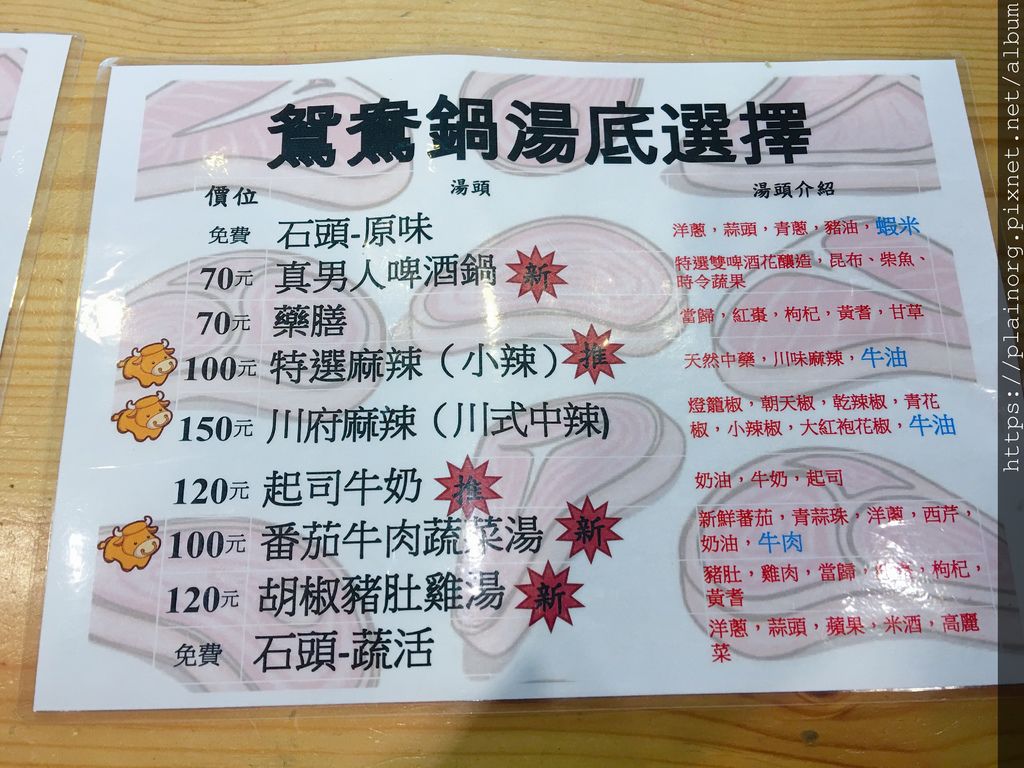 鴛鴦鍋湯底選擇
價位 湯頭 湯頭介紹
免費 石頭-原味 洋蔥，蒜頭，青蔥，豬油，蝦米
70元 真男人啤酒鍋 新 特選雙啤酒花釀造，昆布、柴魚、
時令蔬果
70元 藥膳 當歸，紅棗，枸杞，黃耆，甘草
100元 特選麻辣（小辣） 推 天然中藥，川味麻辣，牛油
150元 川府麻辣（川式中辣) 燈籠椒，朝天椒，乾辣椒，青花
椒，小辣椒，大紅袍花椒，牛油
120元 起司牛奶 推 奶油，牛奶，起司
100元 番茄牛肉蔬菜湯 新 新鮮蕃茄，青蒜珠，洋蔥，西芹，
奶油，牛肉
120元 胡椒豬肚雞湯 新 豬肚，雞肉，當歸，枸杞，
黃耆
免費 石頭-蔬活 洋蔥，蒜頭，蘋果，米酒，高麗
菜
https://plainorg.pixnet.net/album